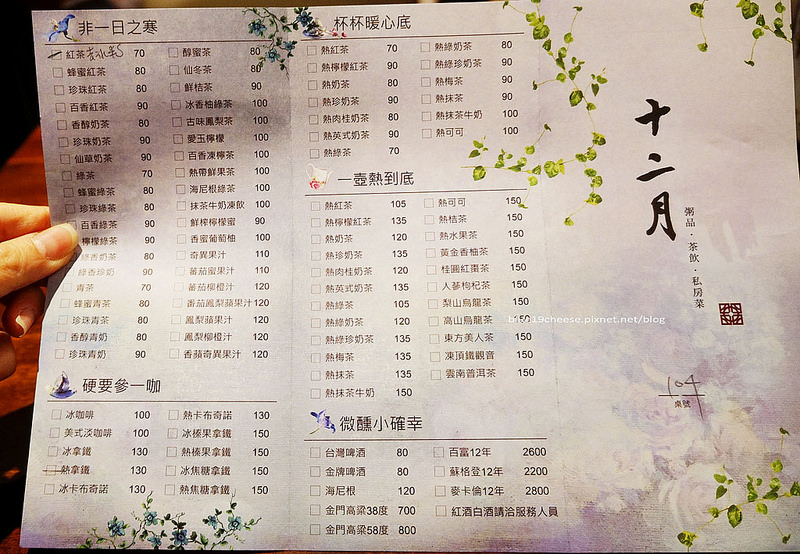 非一日之寒
紅茶 70
蜂蜜紅茶 80
珍珠紅茶 80
百香紅茶 90
香醇奶茶 80
珍珠奶茶 90
仙草奶茶 90
綠茶 70
蜂蜜綠茶 80
珍珠綠茶 80
百香綠茶 90
檸檬綠茶 90
綠香奶茶 80
綠香珍奶 90
青茶 70
蜂蜜青茶 80
珍珠青茶 80
香醇青奶 80
珍珠青奶 90
醇蜜茶 80
仙冬茶 80
鮮桔茶 90
冰香柚綠茶 100
古味鳳梨茶 100
愛玉檸檬 100
百香凍檸茶 100
熱帶鮮果茶 100
海尼根綠茶 100
抹茶牛奶凍飲 100
鮮榨檸檬蜜 90
香蜜葡萄柚 100
奇異果汁 110
蕃茄蜜果汁 110
蕃茄柳橙汁 120
番茄鳳梨蘋果汁 120
鳳梨蘋果汁 120
鳳梨柳橙汁 120
香蘋奇異果汁 120
硬要參一咖
冰咖啡 100
美式淡咖啡 100
冰拿鐵 130
熱拿鐵 130
冰卡布奇諾 130
熱卡布奇諾 130
冰榛果拿鐵 150
熱榛果拿鐵 150
冰焦糖拿鐵 150
熱焦糖拿鐵 150
杯杯暖心底
熱紅茶 70
熱檸檬紅茶 90
熱奶茶 80
熱珍奶茶 90
熱肉桂奶茶 80
熱英式奶茶 90
熱綠茶 70
熱綠奶茶 80
熱綠珍奶茶 90
熱梅茶 90
熱抹茶 90
熱抹茶牛奶 100
熱可可 100
一壺熱到底
熱紅茶 105
熱檸檬紅茶 135
熱奶茶 120
熱珍奶茶 135
熱肉桂奶茶 120
熱英式奶茶 135
熱綠茶 105
熱綠奶茶 120
熱綠珍奶茶 135
熱梅茶 135
熱抹茶 135
熱抹茶牛奶 150
熱可可 150
熱桔茶 150
熱水果茶 150
黃金香柚茶 150
桂圓紅棗茶 150
人蔘枸杞茶 150
梨山烏龍茶 150
高山烏龍茶 150
東方美人茶 150
凍頂鐵觀音 150
雲南普洱茶 150
微醺小確幸
台灣啤酒 80
金牌啤酒 80
海尼根 120
金門高粱38度 700
金門高粱58度 800
百富12年 2600
蘇格登12年 2200
麥卡倫12年 2800
紅酒白酒請洽服務人員
十二月
粥品．茶飲．私房菜
104
桌號